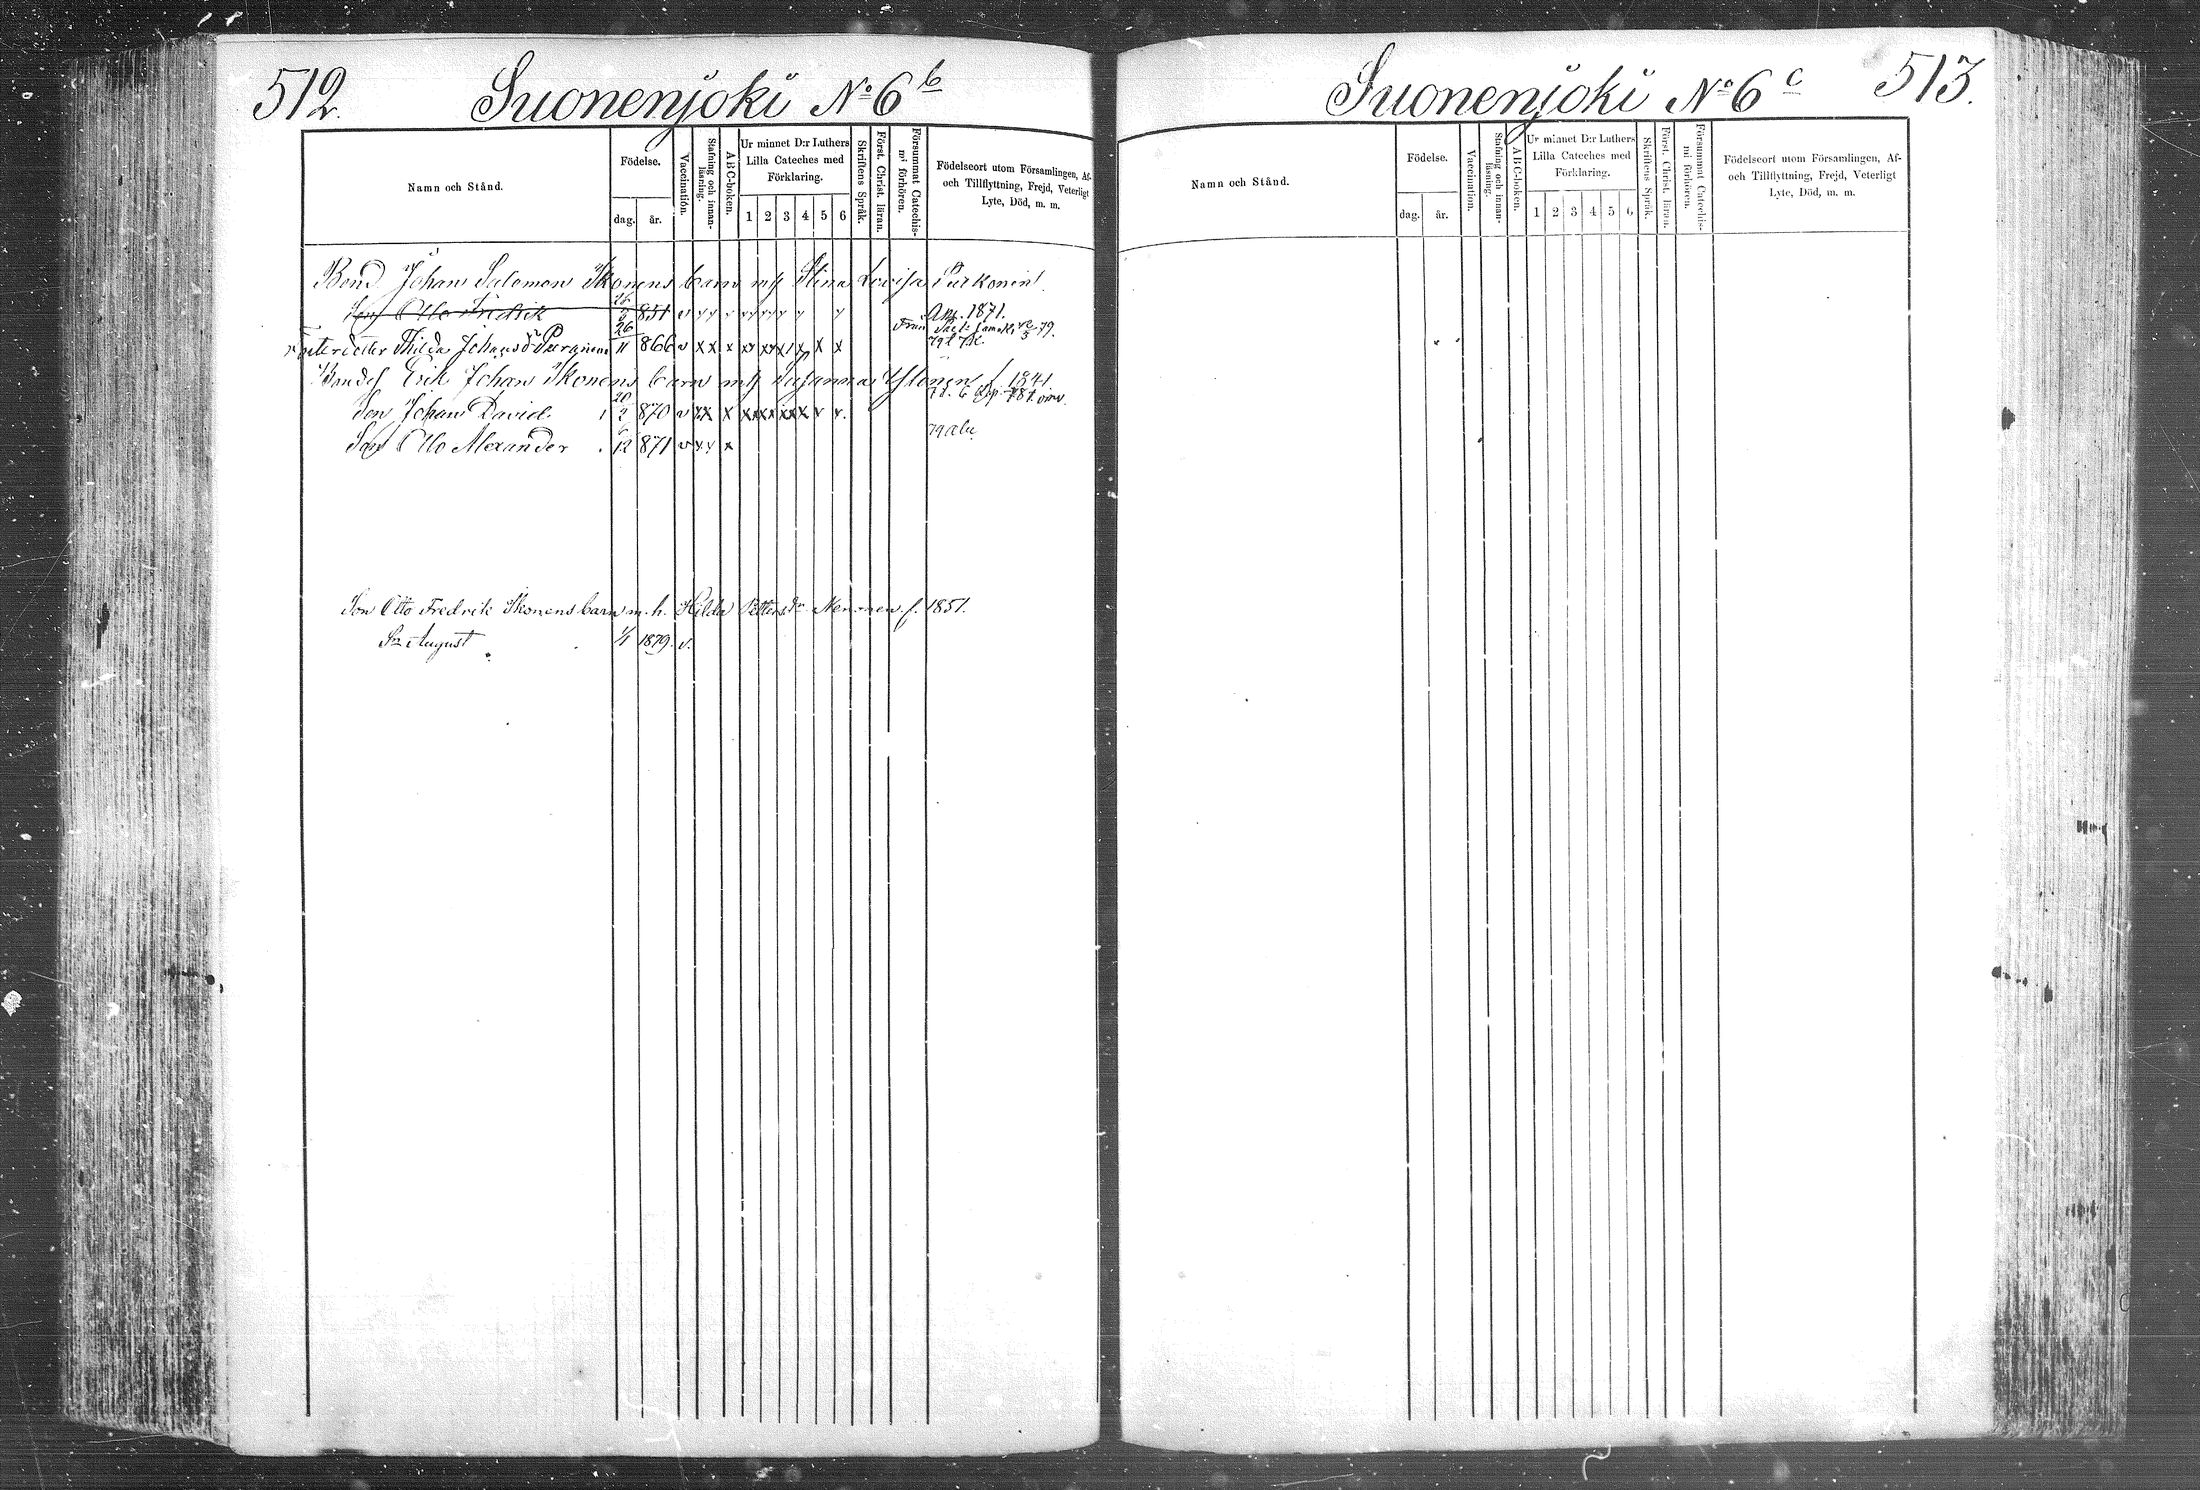 512.
Suonenjoki No 6 b
Namn och Stånd.
Födelse.
dag.
år.
Vaccination.
Stafning och innan-
läsning.
ABC-boken.
Ur minnet D:r Luthers
Lilla Cateches med
Förklaring.
1 2 3 4 5 6
Skriftens Språk.
Först. Christ. läran.
Försummat Catechis-
mi förhören.
Födelseort utom Församlingen, Af-
och Tillflyttning, Frejd, Veterligt
Lyte, Död, m. m.
Bond Johan Salomon Ikonens barn m/h Stina Lovisa
Son Otto Fredrik 5 851 v Adm. 1871.
Thilda 26 11 866 v x x x 79.
Bondes Erik Johan Ikonens barn m/h Susanna f 1841
Son Johan David 20 2 870 v xx x
Son Otto Alexander 6 12 871 v x
Son Otto Fredrik Ikonens barn m. h. Hilda Pettersdr Nenonen f. 1851.
Sn August 1/1 1879. v.
Suonenjoki No 6 c
513.
Namn och Stånd.
Födelse.
dag.
år.
Vaccination.
Stafning och innan-
läsning.
ABC-boken.
Ur minnet D:r Luthers
Lilla Cateches med
Förklaring.
1 2 3 4 5 6
Skriftens Språk.
Först. Christ. läran.
Försummat Catechis-
mi förhören.
Födelseort utom Församlingen, Af-
och Tillflyttning, Frejd, Veterligt
Lyte, Död, m. m.